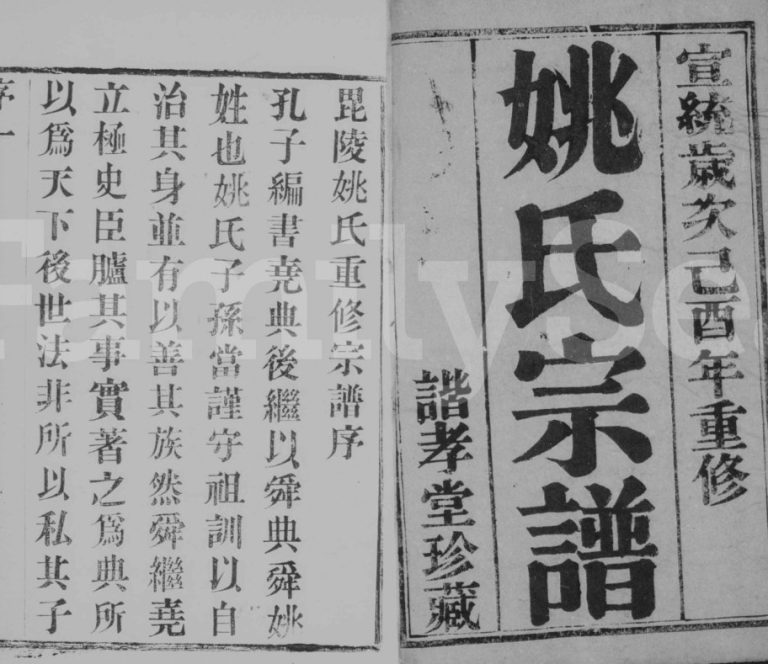 宣統歲次己酉年重修
姚氏宗譜
諧孝堂珍藏
毘陵姚氏重修宗譜序
孔子編書堯典後繼以舜典舜姚
姓也姚氏子孫當謹守祖訓以自
治其身並有以善其族然舜繼堯
立極史臣臚其事實著之爲典所
以爲天下後世法非所以私其子
序一
FamilySe